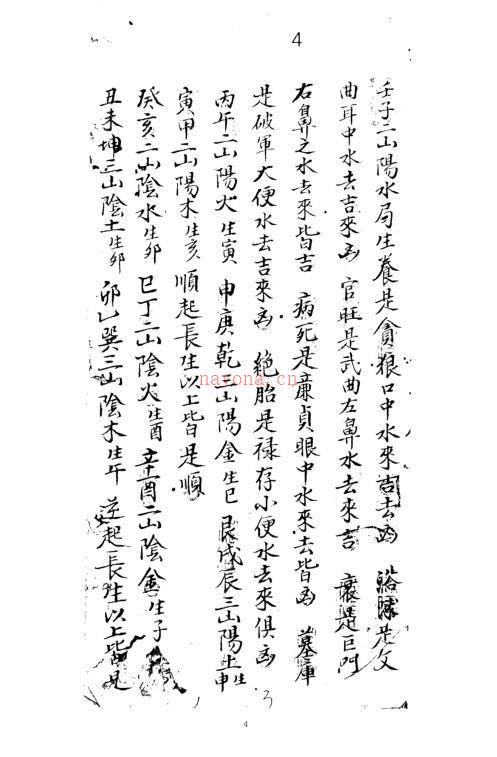 4
壬子二山陽水局生養是貪狼口中水來吉去凶 浴是文
曲耳中水去吉來凶 官旺是武曲左鼻水去來吉 衰是巨門
右鼻之水去來皆吉 病死是亷貞眼中水來去皆凶 墓庫
是破軍大便水去吉來凶 絕胎是禄存小便水去來俱凶
丙午二山陽火生寅 申庚乾三山陽金生巳 艮戌辰三山陽土生申
寅甲二山陽木生亥 順起長生以上皆是順
癸亥二山陰水生卯 巳丁二山陰火生酉 辛酉二山陰金生子
丑未坤三山陰土生卯 卯乙巽三山陰木生午 逆起長生以上皆是
nayona.cn
3
4